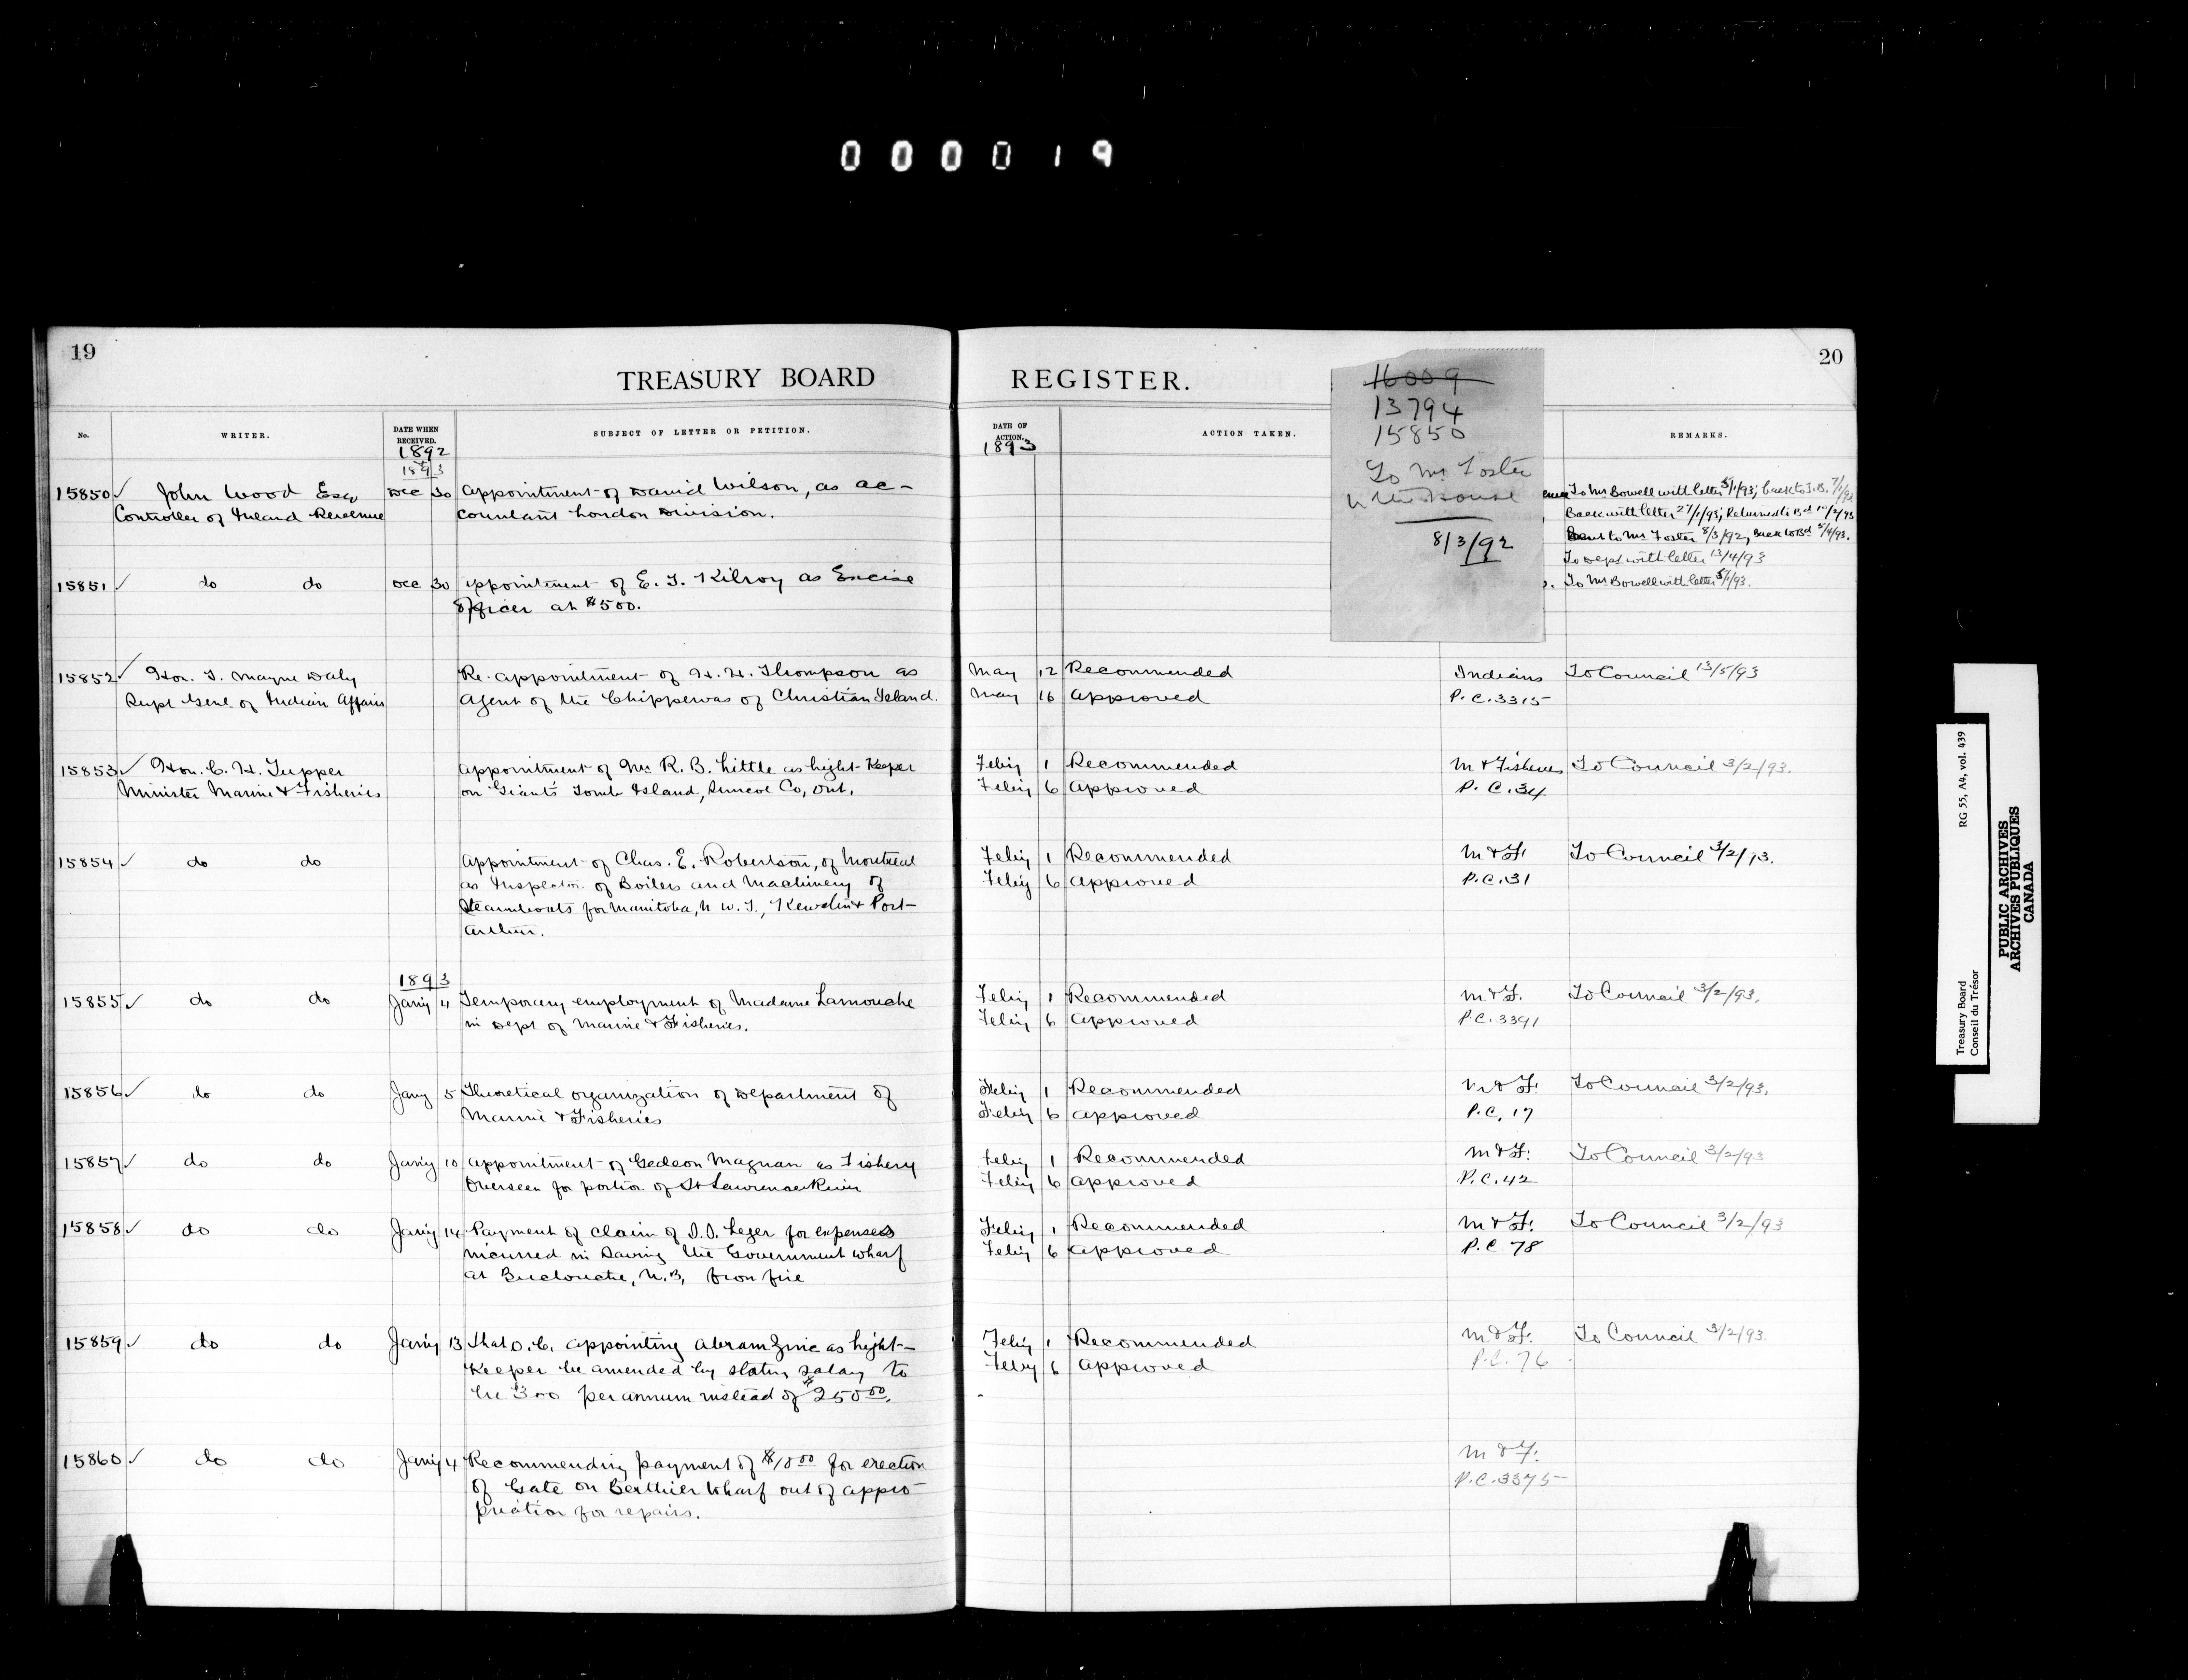 000019
19
TREASURY BOARD
REGISTER.
20
No.
WRITER.
DATE WHEN RECEIVED.
1892
1893
SUBJECT OF LETTER OR PETITION.
DATE OF ACTION.
1893
ACTION TAKEN.
REMARKS.
16009
13794
15850
To Mr Foster
in the House
8/3/92
15850 John Wood Esq Dec 30 Appointment of David Wilson, as ac- To Mr Bowell with letter 5/1/93; back to T.B. 7/1/93
Controller of Inland Revenue countant London Division. Back with letter 27/1/93; Returned to Bd 10/2/93
Sent to Mr Foster 8/3/92, back to Bd 5/4/93.
To Dept with letter 13/4/93
15851 do do Dec 30 Appointment of E. J. Kilroy as Excise To Mr Bowell with letter 5/1/93.
Officer at $500.
15852 Hon. T. Mayne Daly Re-appointment of H. H. Thompson as May 12 Recommended Indians To Council 13/5/93
Supt Genl. of Indian Affairs Agent of the Chippewas of Christian Island. May 16 Approved P.C. 3315
15853 Hon. C. H. Tupper Appointment of Mr R. B. Little as Light-Keeper Feby 1 Recommended M & Fisheries To Council 3/2/93.
Minister Marine & Fisheries on Giant's Tomb Island, Simcoe Co, Ont. Feby 6 Approved P.C. 34
15854 do do Appointment of Chas. E. Robertson, of Montreal Feby 1 Recommended M & F. To Council 3/2/93.
as Inspector of Boilers and Machinery of Feby 6 Approved P.C. 31
Steamboats for Manitoba, N. W. T., Kewdin & Port-
Arthur.
1893
15855 do do Jany 4 Temporary employment of Madame Lamouche Feby 1 Recommended M & F. To Council 3/2/93.
in Dept of Marine & Fisheries. Feby 6 Approved P.C. 3391
15856 do do Jany 5 Theoretical organization of Department of Feby 1 Recommended M & F. To Council 3/2/93.
Marine & Fisheries Feby 6 Approved P.C. 17
15857 do do Jany 10 Appointment of Gedeon Magnan as Fishery Feby 1 Recommended M & F. To Council 3/2/93
Overseer for portion of St Lawrence River Feby 6 Approved P.C. 42
15858 do do Jany 14 Payment of claim of D. D. Leger for expenses Feby 1 Recommended M & F. To Council 3/2/93
incurred in saving the Government wharf Feby 6 Approved P.C. 78
at Buctouche, N.B, from fire
15859 do do Jany 13 That O. C. appointing Abram Zinc as Light- Feby 1 Recommended M & F. To Council 3/2/93.
Keeper be amended by stating salary to Feby 6 Approved P.C. 76
be $300 per annum instead of $250.00.
15860 do do Jany 4 Recommending payment of $10.00 for erection M & F.
of Gate on Berthier Wharf out of appro- P.C. 3375
priation for repairs.
Treasury Board
Conseil du Trésor
RG 55, A4, vol. 439
PUBLIC ARCHIVES
ARCHIVES PUBLIQUES
CANADA